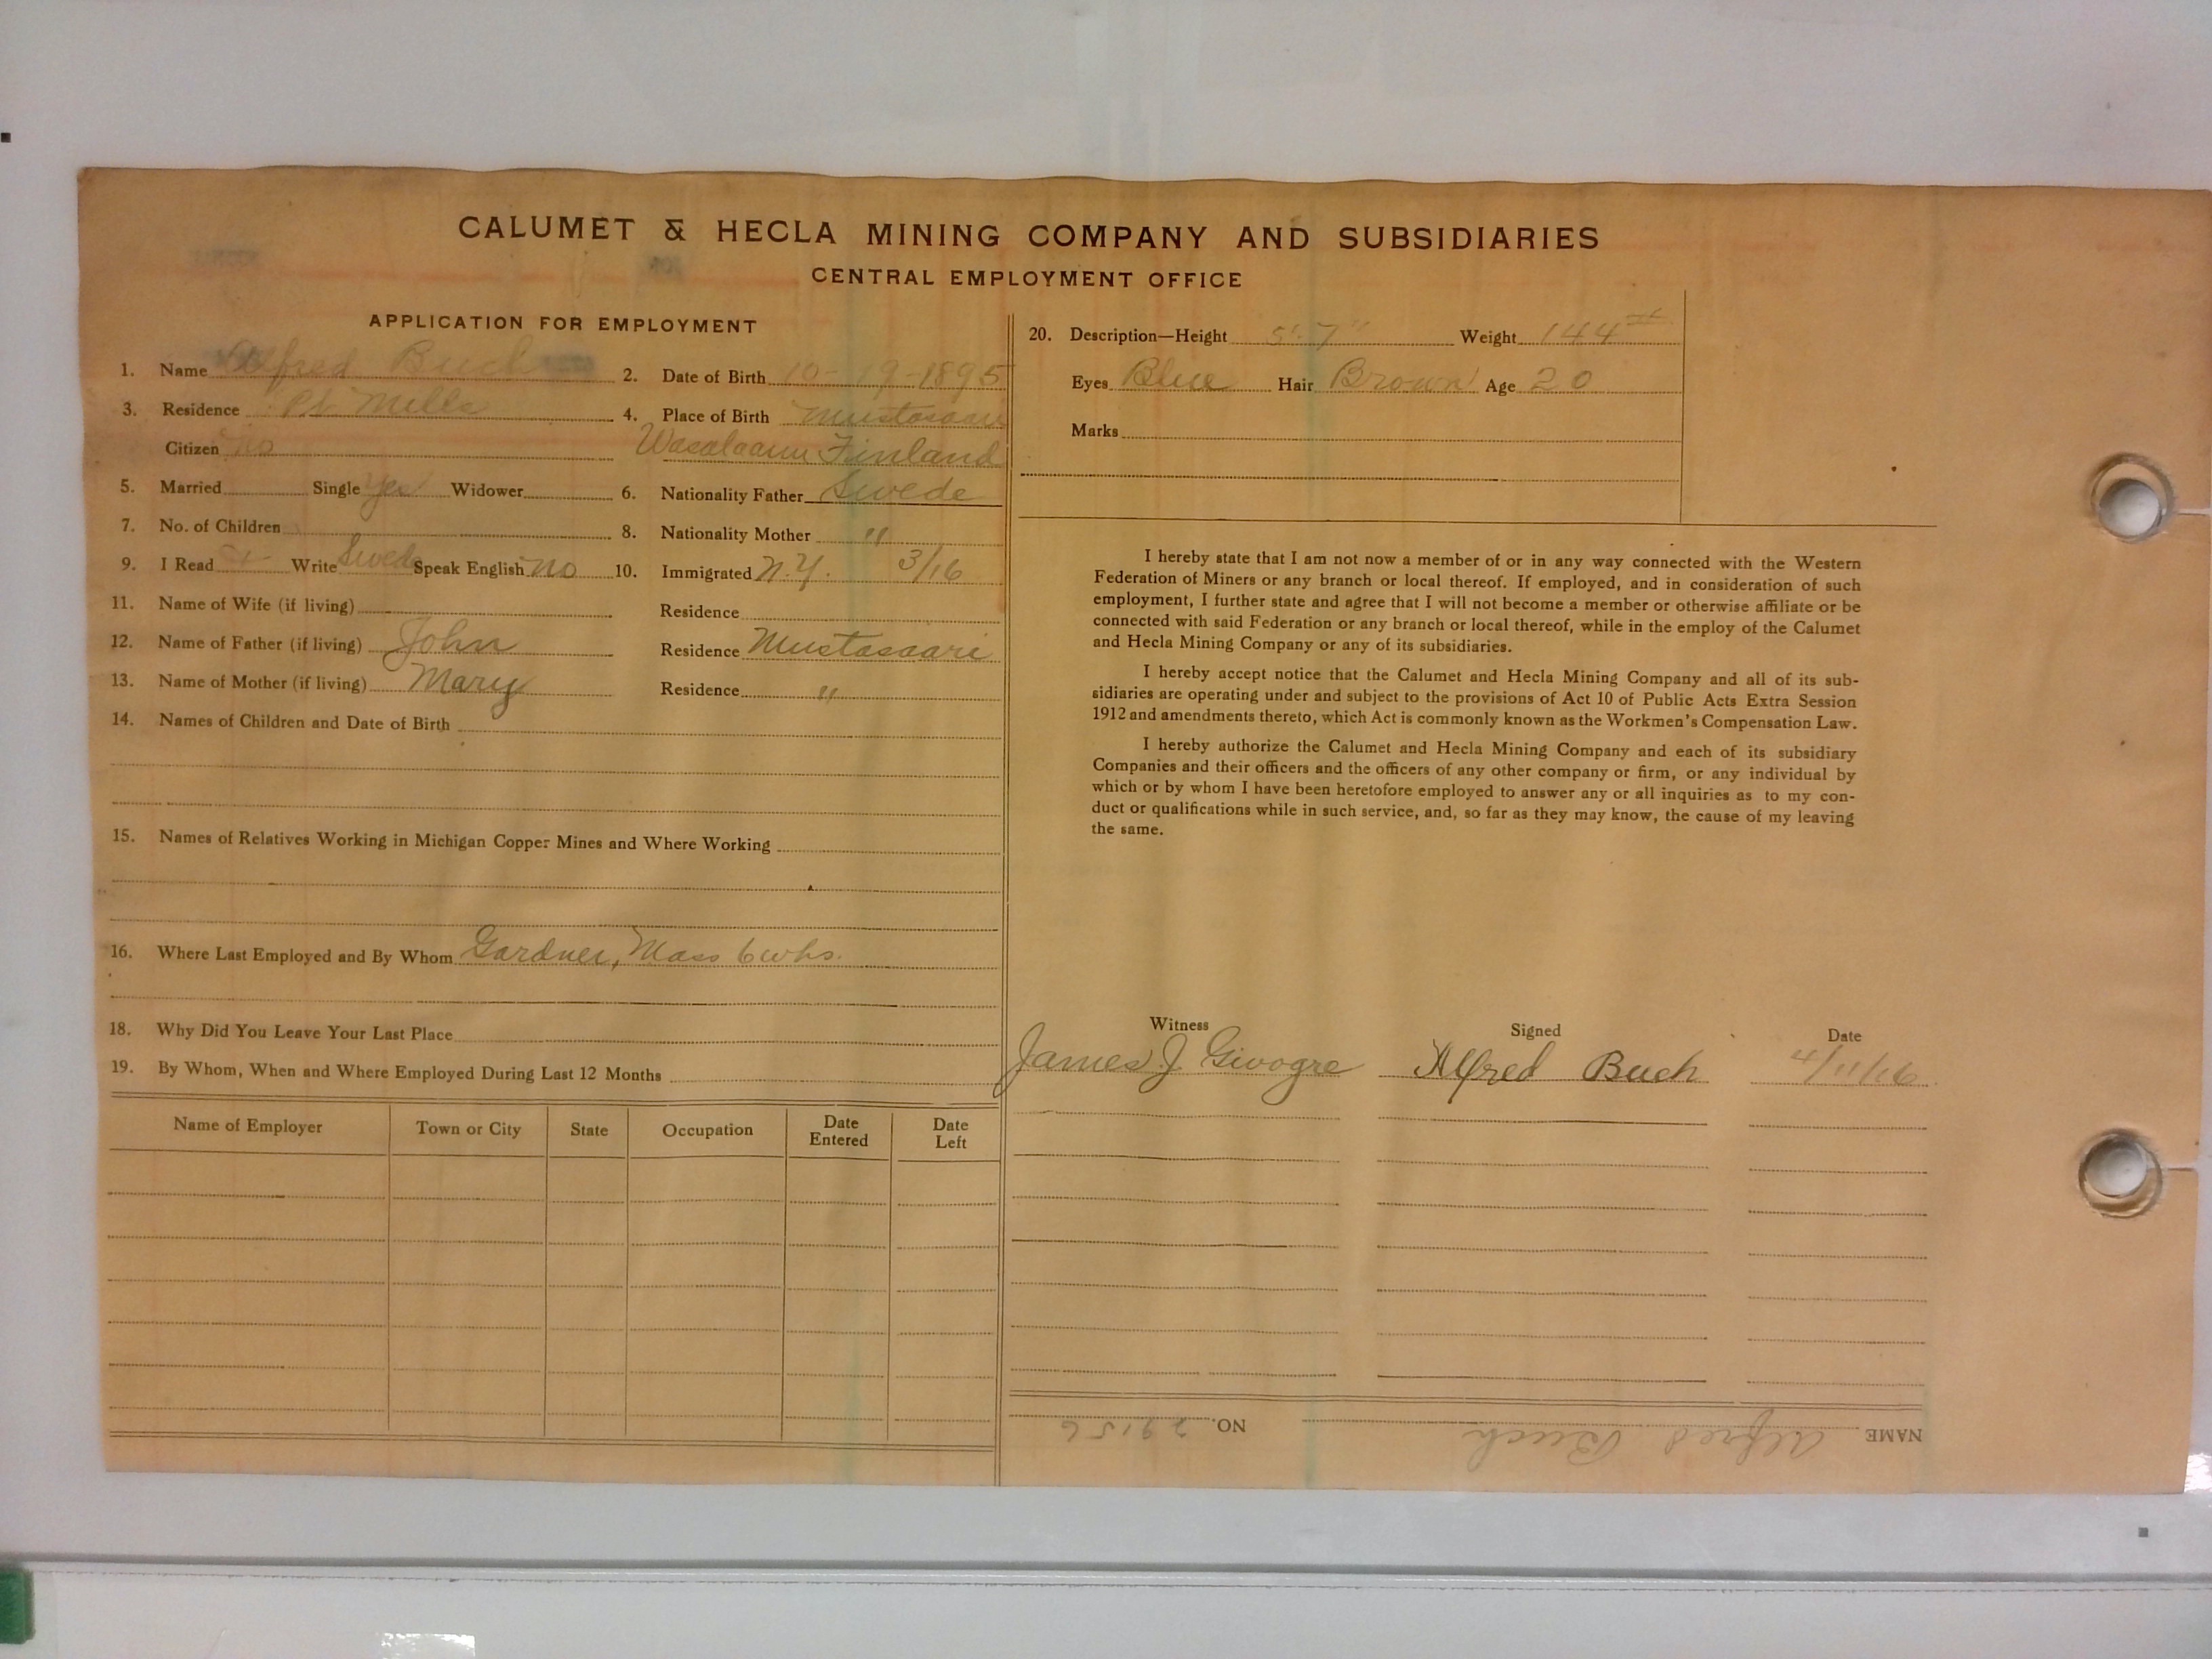 CALUMET & HECLA MINING COMPANY AND SUBSIDIARIES
CENTRAL EMPLOYMENT OFFICE
APPLICATION FOR EMPLOYMENT
1. Name Alfred Buch 2. Date of Birth 10-19-1895
3. Residence Pt. Mills 4. Place of Birth Mustasaari
Citizen no Wasalaani Finland
5. Married Single Yes Widower 6. Nationality Father Swede
7. No. of Children 8. Nationality Mother "
9. I Read + Write Swede Speak English no 10. Immigrated N.Y. 3/16
11. Name of Wife (if living) Residence
12. Name of Father (if living) John Residence Mustasaari
13. Name of Mother (if living) Mary Residence "
14. Names of Children and Date of Birth
15. Names of Relatives Working in Michigan Copper Mines and Where Working
16. Where Last Employed and By Whom Gardner, Mass 6 wks.
18. Why Did You Leave Your Last Place
19. By Whom, When and Where Employed During Last 12 Months
Name of Employer Town or City State Occupation Date Entered Date Left
20. Description—Height 5'-7" Weight 144#
Eyes Blue Hair Brown Age 20
Marks
I hereby state that I am not now a member of or in any way connected with the Western
Federation of Miners or any branch or local thereof. If employed, and in consideration of such
employment, I further state and agree that I will not become a member or otherwise affiliate or be
connected with said Federation or any branch or local thereof, while in the employ of the Calumet
and Hecla Mining Company or any of its subsidiaries.
I hereby accept notice that the Calumet and Hecla Mining Company and all of its sub-
sidiaries are operating under and subject to the provisions of Act 10 of Public Acts Extra Session
1912 and amendments thereto, which Act is commonly known as the Workmen's Compensation Law.
I hereby authorize the Calumet and Hecla Mining Company and each of its subsidiary
Companies and their officers and the officers of any other company or firm, or any individual by
which or by whom I have been heretofore employed to answer any or all inquiries as to my con-
duct or qualifications while in such service, and, so far as they may know, the cause of my leaving
the same.
Witness Signed Date
James J Givogre Alfred Buch 4/11/16
NAME Alfred Buch NO. 29156